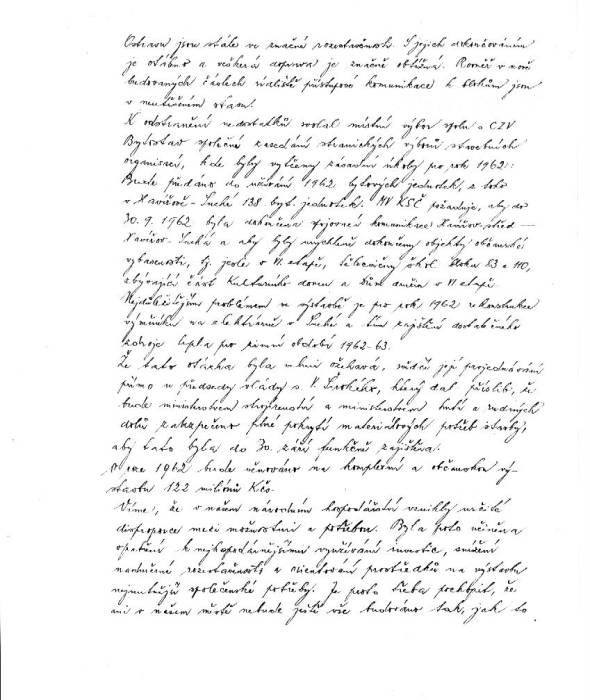 Ostravu jsou stále ve značné rozestavěnosti. S jejich dokončováním
je otáleno a veškerá doprava je značně obtížná. Rovněž v nově
budovaných částech sídliště přístupové komunikace k blokům jsou
v neutěšeném stavu.
K odstranění nedostatků svolal místní výbor spolu s CZV
Bytostav společné zasedání stranických výborů stavebních
organisací, kde byly vytčeny zásadní úkoly pro rok 1962:
Bude předáno do užívání 1962 bytových jednotek, z toho
v Havířově-Suché 138 byt. jednotek. MV KSČ požaduje, aby do
30. 9. 1962 byla dokončena spojovací komunikace Havířov-střed —
Havířov-Suchá a aby byly urychleně dokončeny objekty občanské
vybavenosti, tj. jesle v VI. etapě, tělocvičny škol bloku 83 a 110,
zbývající část Kulturního domu a Dům směn v VI etapě
Nejdůležitějším problémem ve výstavbě je pro rok 1962 rekonstrukce
výměníku na elektrárně v Suché a tím zajištění dostatečného
zdroje tepla pro zimní období 1962-63.
Že tato otázka byla velmi ožehavá, svědčí její projednávání
přímo u předsedy vlády s. V. Širokého, který dal příslib, že
bude ministerstvem strojírenství a ministerstvem hutí a rudných
dolů zabezpečeno plné pokrytí materiálových potřeb stavby,
aby tato byla do 30. září funkčně zajištěna.
V roce 1962 bude věnováno na komplexní a občanskou vý-
stavbu 122 milionů Kčs.
Víme, že v našem národním hospodářství vznikly určité
disproporce mezi možnostmi a potřebou. Byla proto učiněna
opatření k nejhospodárnějšímu využívání investic, snížení
nadměrné rozestavěnosti a orientování prostředků na výstavbu
nejnutnější společenské potřeby. Je proto třeba pochopit, že
ani v našem městě nebude ještě vše budováno tak, jak to